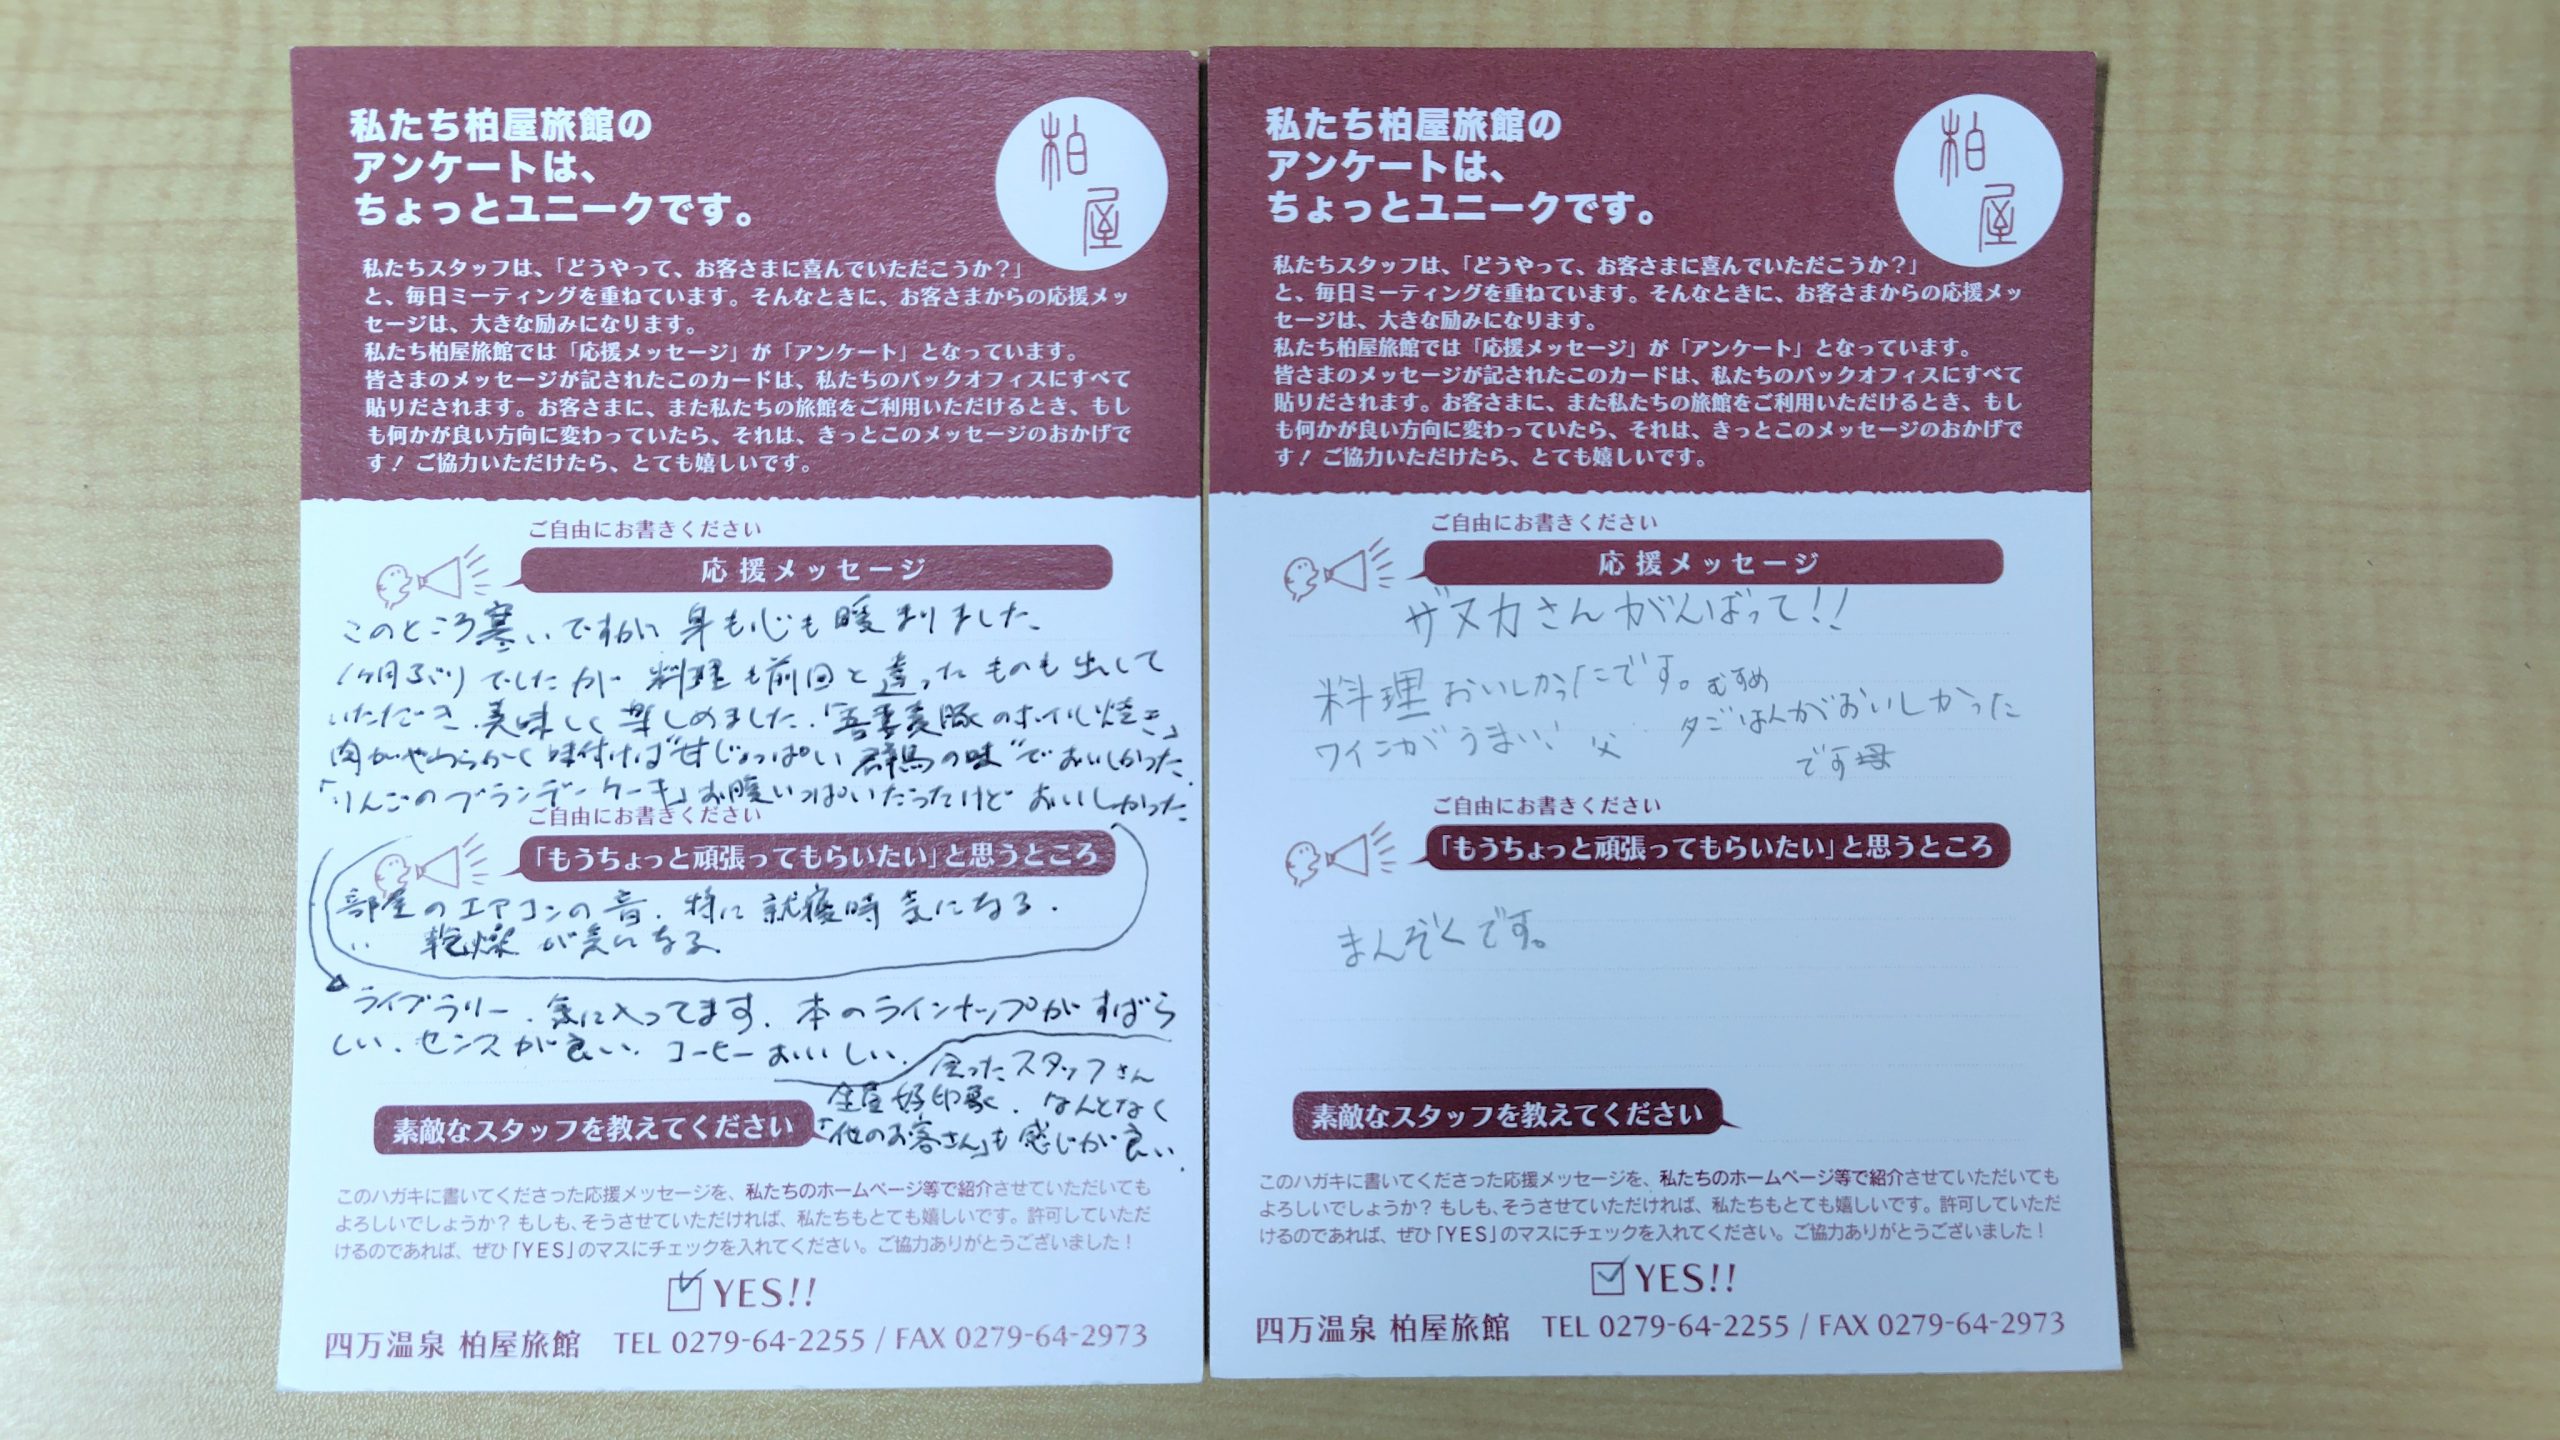 私たち柏屋旅館の
アンケートは、
ちょっとユニークです。
柏屋
私たちスタッフは、「どうやって、お客さまに喜んでいただこうか？」
と、毎日ミーティングを重ねています。そんなときに、お客さまからの応援メッ
セージは、大きな励みになります。
私たち柏屋旅館では「応援メッセージ」が「アンケート」となっています。
皆さまのメッセージが記されたこのカードは、私たちのバックオフィスにすべて
貼りだされます。お客さまに、また私たちの旅館をご利用いただけるとき、もし
も何かが良い方向に変わっていたら、それは、きっとこのメッセージのおかげで
す！ご協力いただけたら、とても嬉しいです。
ご自由にお書きください
応援メッセージ
このところ寒いですが 身も心も暖まりました.
1ヶ月ぶりでしたが 料理も前回と違ったものも出して
いただき.美味しく楽しめました.「吾妻麦豚のホイル焼き」
肉がやわらかく味付けは"甘じょっぱい群馬の味"でおいしかった.
「りんごのブランデーケーキ」お腹いっぱいだったけど おいしかった.
ご自由にお書きください
「もうちょっと頑張ってもらいたい」と思うところ
部屋のエアコンの音.特に就寝時気になる.
〃 乾燥が気になる
ライブラリー.気に入ってます.本のラインナップがすばら
しい.センスが良い.コーヒーおいしい.
会ったスタッフさん
全員好印象.なんとなく
「他のお客さん」も感じが良い.
素敵なスタッフを教えてください
このハガキに書いてくださった応援メッセージを、私たちのホームページ等で紹介させていただいても
よろしいでしょうか？もしも、そうさせていただければ、私たちもとても嬉しいです。許可していただ
けるのであれば、ぜひ「YES」のマスにチェックを入れてください。ご協力ありがとうございました！
YES!!
四万温泉 柏屋旅館 TEL 0279-64-2255 / FAX 0279-64-2973
私たち柏屋旅館の
アンケートは、
ちょっとユニークです。
柏屋
私たちスタッフは、「どうやって、お客さまに喜んでいただこうか？」
と、毎日ミーティングを重ねています。そんなときに、お客さまからの応援メッ
セージは、大きな励みになります。
私たち柏屋旅館では「応援メッセージ」が「アンケート」となっています。
皆さまのメッセージが記されたこのカードは、私たちのバックオフィスにすべて
貼りだされます。お客さまに、また私たちの旅館をご利用いただけるとき、もし
も何かが良い方向に変わっていたら、それは、きっとこのメッセージのおかげで
す！ご協力いただけたら、とても嬉しいです。
ご自由にお書きください
応援メッセージ
ザヌカさんがんばって!!
料理おいしかったです。むすめ
ワインがうまい! 父
夕ごはんがおいしかった
です母
ご自由にお書きください
「もうちょっと頑張ってもらいたい」と思うところ
まんぞくです。
素敵なスタッフを教えてください
このハガキに書いてくださった応援メッセージを、私たちのホームページ等で紹介させていただいても
よろしいでしょうか？もしも、そうさせていただければ、私たちもとても嬉しいです。許可していただ
けるのであれば、ぜひ「YES」のマスにチェックを入れてください。ご協力ありがとうございました！
YES!!
四万温泉 柏屋旅館 TEL 0279-64-2255 / FAX 0279-64-2973